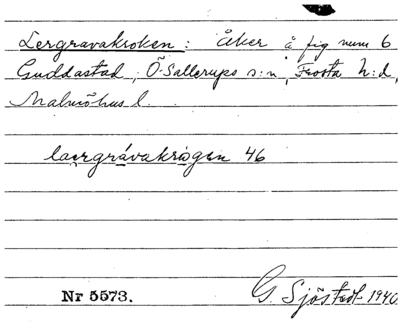 Lergravakroken: Åker å fig num 6
Guddastad, Ö. Sallerups s:n, Frosta h:d,
Malmöhus l.
laergrávakrogen 46
Nr 5573.
G. Sjöstedt 1940